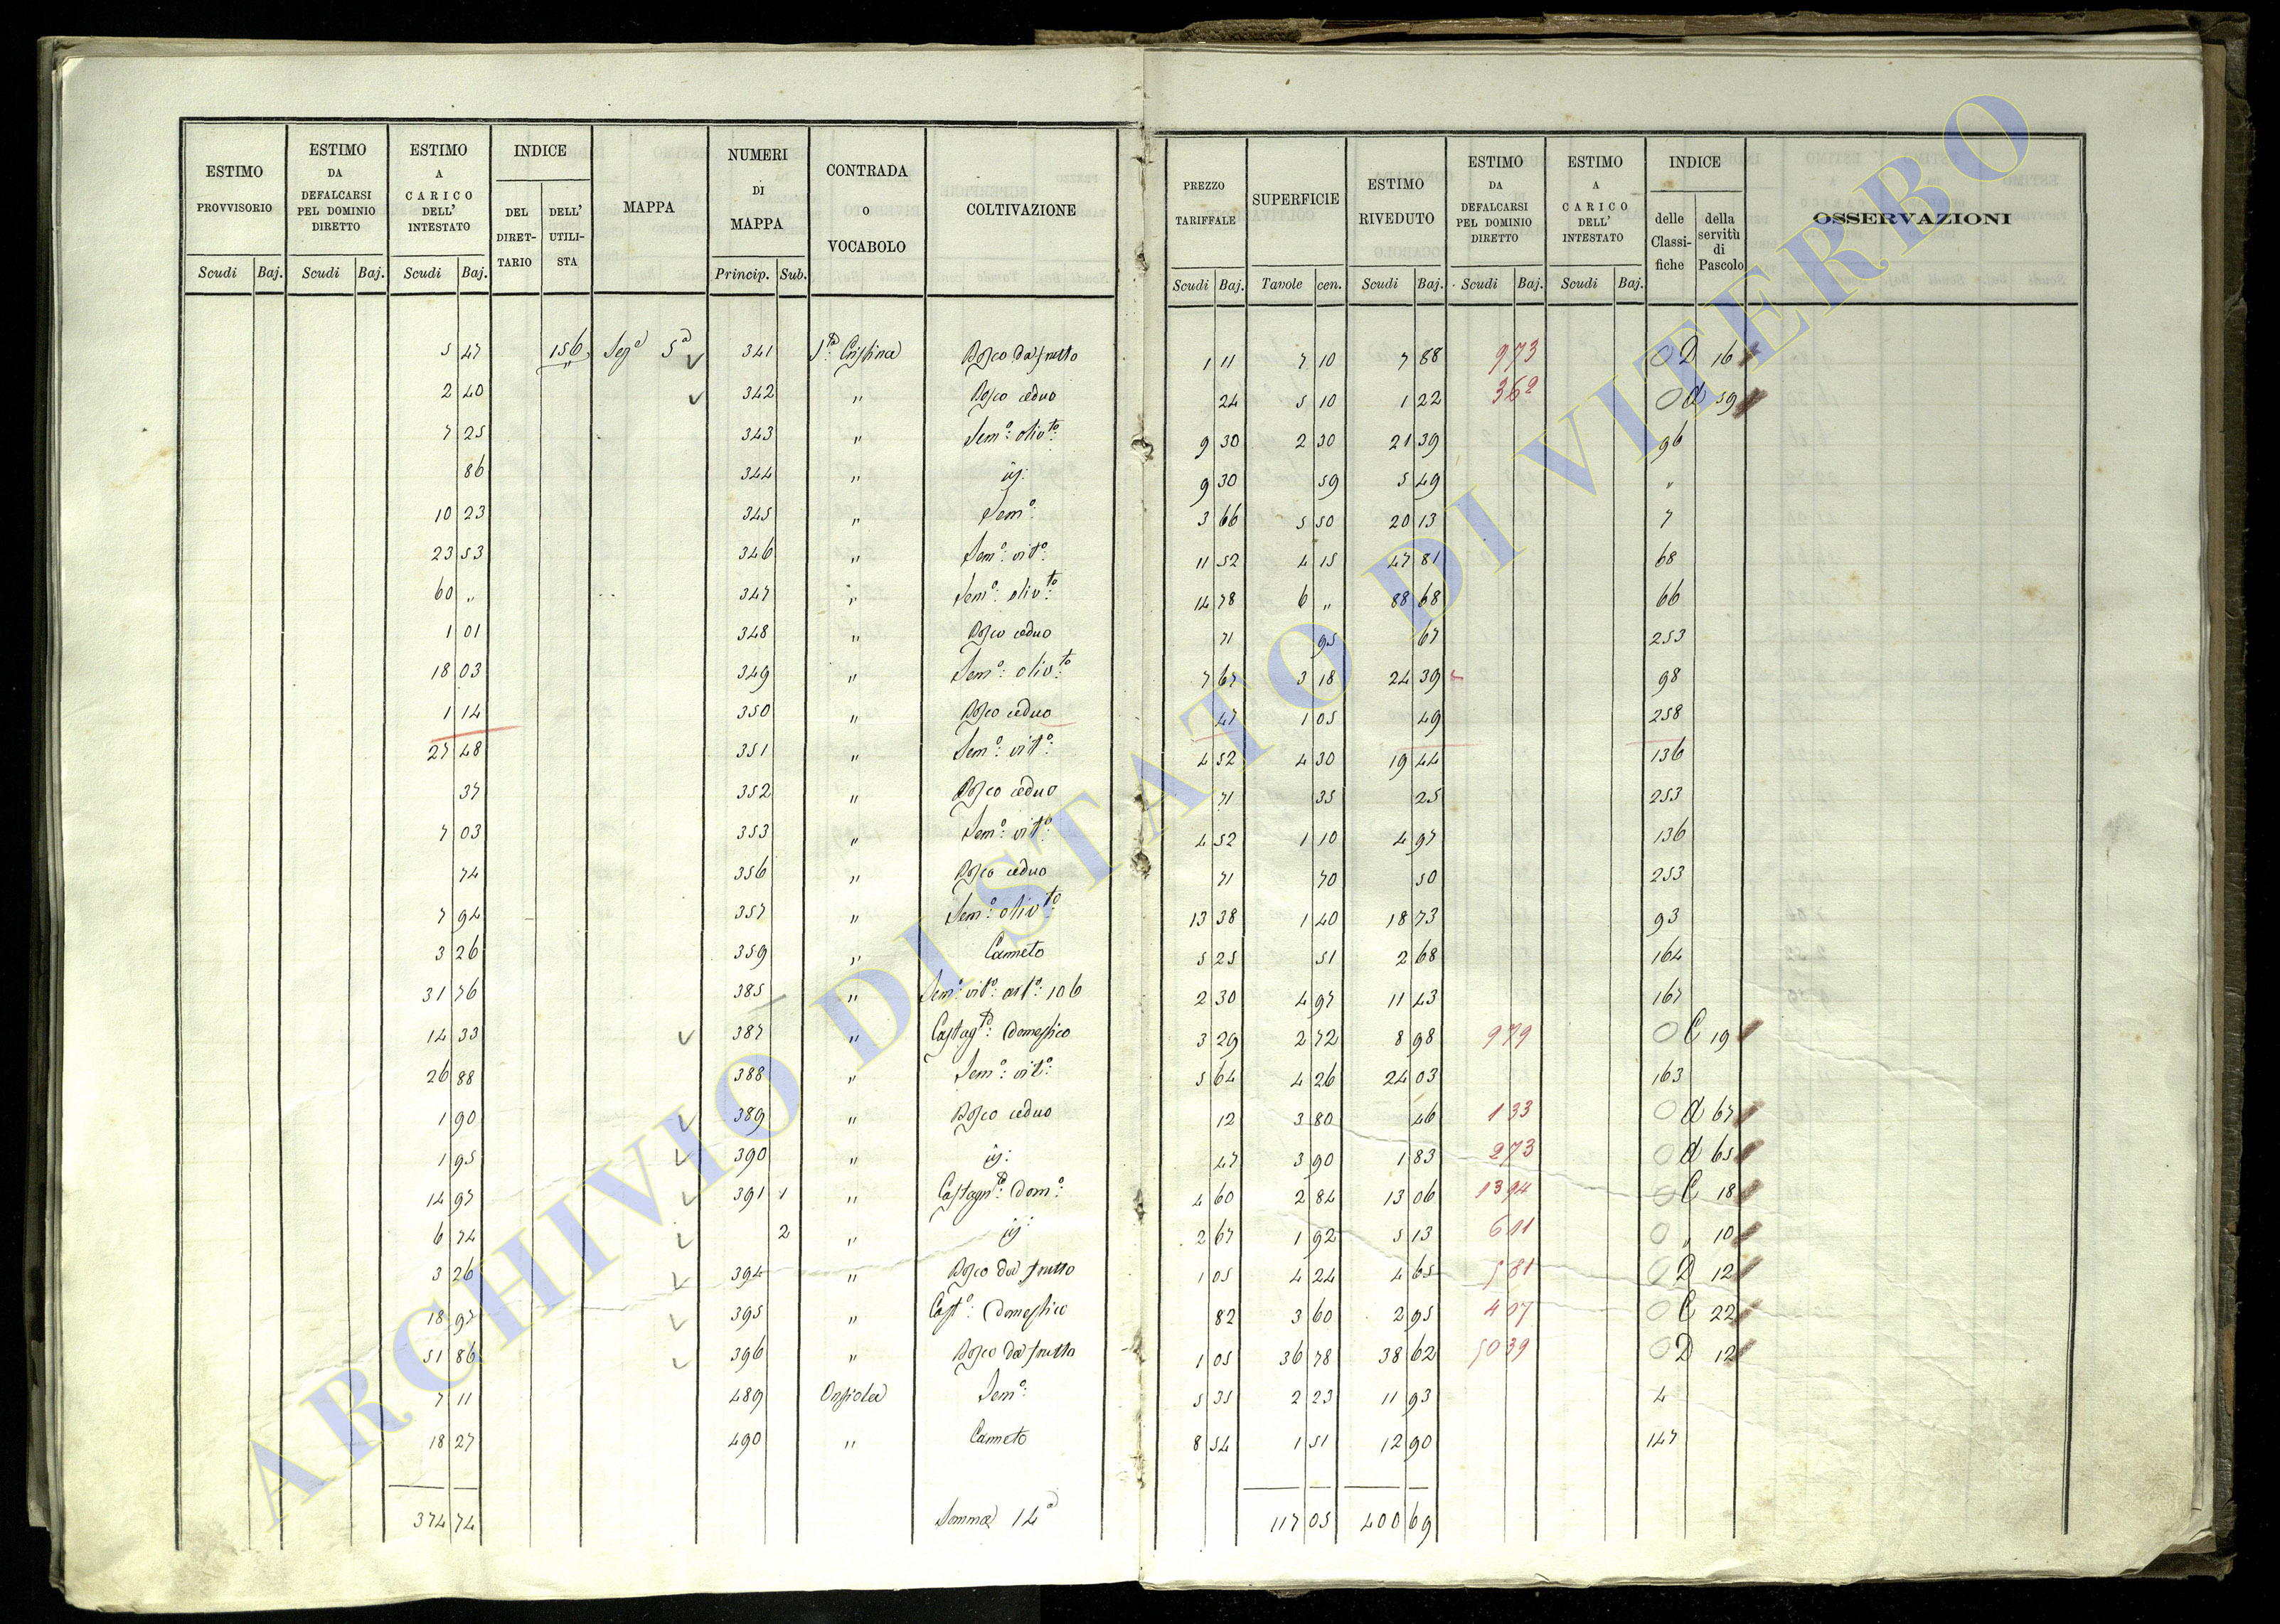 ESTIMO PROVVISORIO | ESTIMO DA DEFALCARSI PEL DOMINIO DIRETTO | ESTIMO A CARICO DELL' INTESTATO | INDICE DEL DIRET-TARIO | DELL' UTILI-STA | MAPPA | NUMERI DI MAPPA | CONTRADA O VOCABOLO | COLTIVAZIONE | PREZZO TARIFFALE | SUPERFICIE | ESTIMO RIVEDUTO | ESTIMO DA DEFALCARSI PEL DOMINIO DIRETTO | ESTIMO A CARICO DELL' INTESTATO | INDICE delle Classi-fiche | della servitù di Pascolo | OSSERVAZIONI
Scudi Baj. | Scudi Baj. | Scudi Baj. | Princip. Sub. | Scudi Baj. | Tavole cen. | Scudi Baj. | Scudi Baj. | Scudi Baj.
5 47 | 156 | Sezᵃ 5ᵃ | 341 | Sᵗᵃ Cristina | Bosco da frutto | 1 11 | 7 10 | 7 88 | 973 | D 16
2 40 | 342 | " | Bosco ceduo | 24 | 5 10 | 1 22 | 362 | d 59
7 25 | 343 | " | Semᵒ: olivᵗᵒ: | 9 30 | 2 30 | 21 39 | 96
86 | 344 | " | id: | 9 30 | 59 | 5 49 | "
10 23 | 345 | " | Semᵒ: | 3 66 | 5 50 | 20 13 | 7
23 53 | 346 | " | Semᵒ: vitᵒ: | 11 52 | 4 15 | 47 81 | 68
60 " | 347 | " | Semᵒ: olivᵗᵒ: | 14 78 | 6 " | 88 68 | 66
1 01 | 348 | " | Bosco ceduo | 71 | 95 | 67 | 253
18 03 | 349 | " | Semᵒ: olivᵗᵒ: | 7 67 | 3 18 | 24 39 | 98
1 14 | 350 | " | Bosco ceduo | 47 | 1 05 | 49 | 258
27 48 | 351 | " | Semᵒ: vitᵒ: | 4 52 | 4 30 | 19 44 | 136
37 | 352 | " | Bosco ceduo | 71 | 35 | 25 | 253
7 03 | 353 | " | Semᵒ: vitᵒ: | 4 52 | 1 10 | 4 97 | 136
74 | 356 | " | Bosco ceduo | 71 | 70 | 50 | 253
7 94 | 357 | " | Semᵒ: olivᵗᵒ: | 13 38 | 1 40 | 18 73 | 93
3 26 | 359 | " | Canneto | 5 25 | 51 | 2 68 | 164
31 76 | 385 | " | Semᵒ: vitᵒ: astᵒ: 106 | 2 30 | 4 97 | 11 43 | 167
14 33 | 387 | " | Castagᵗᵒ: Domestico | 3 29 | 2 72 | 8 98 | 979 | C 19
26 88 | 388 | " | Semᵒ: vitᵒ: | 5 64 | 4 26 | 24 03 | 163
1 90 | 389 | " | Bosco ceduo | 12 | 3 80 | 46 | 133 | d 67
1 95 | 390 | " | id: | 47 | 3 90 | 1 83 | 273 | d 65
14 97 | 391 1 | " | Castagnᵗᵒ: Domᵒ: | 4 60 | 2 84 | 13 06 | 1394 | C 18
6 74 | 2 | " | id: | 2 67 | 1 92 | 5 13 | 611 | " 10
3 26 | 394 | " | Bosco da frutto | 1 05 | 4 24 | 4 65 | 581 | D 12
18 97 | 395 | " | Castᵒ: Domestico | 82 | 3 60 | 2 95 | 407 | C 22
51 86 | 396 | " | Bosco da frutto | 1 05 | 36 78 | 38 62 | 5039 | D 12
7 11 | 489 | Semᵒ: | 5 35 | 2 23 | 11 93 | 4
18 27 | 490 | " | Canneto | 8 54 | 1 51 | 12 90 | 147
374 74 | Somma 14ᵃ | 117 05 | 400 69
ARCHIVIO DI STATO DI VITERBO